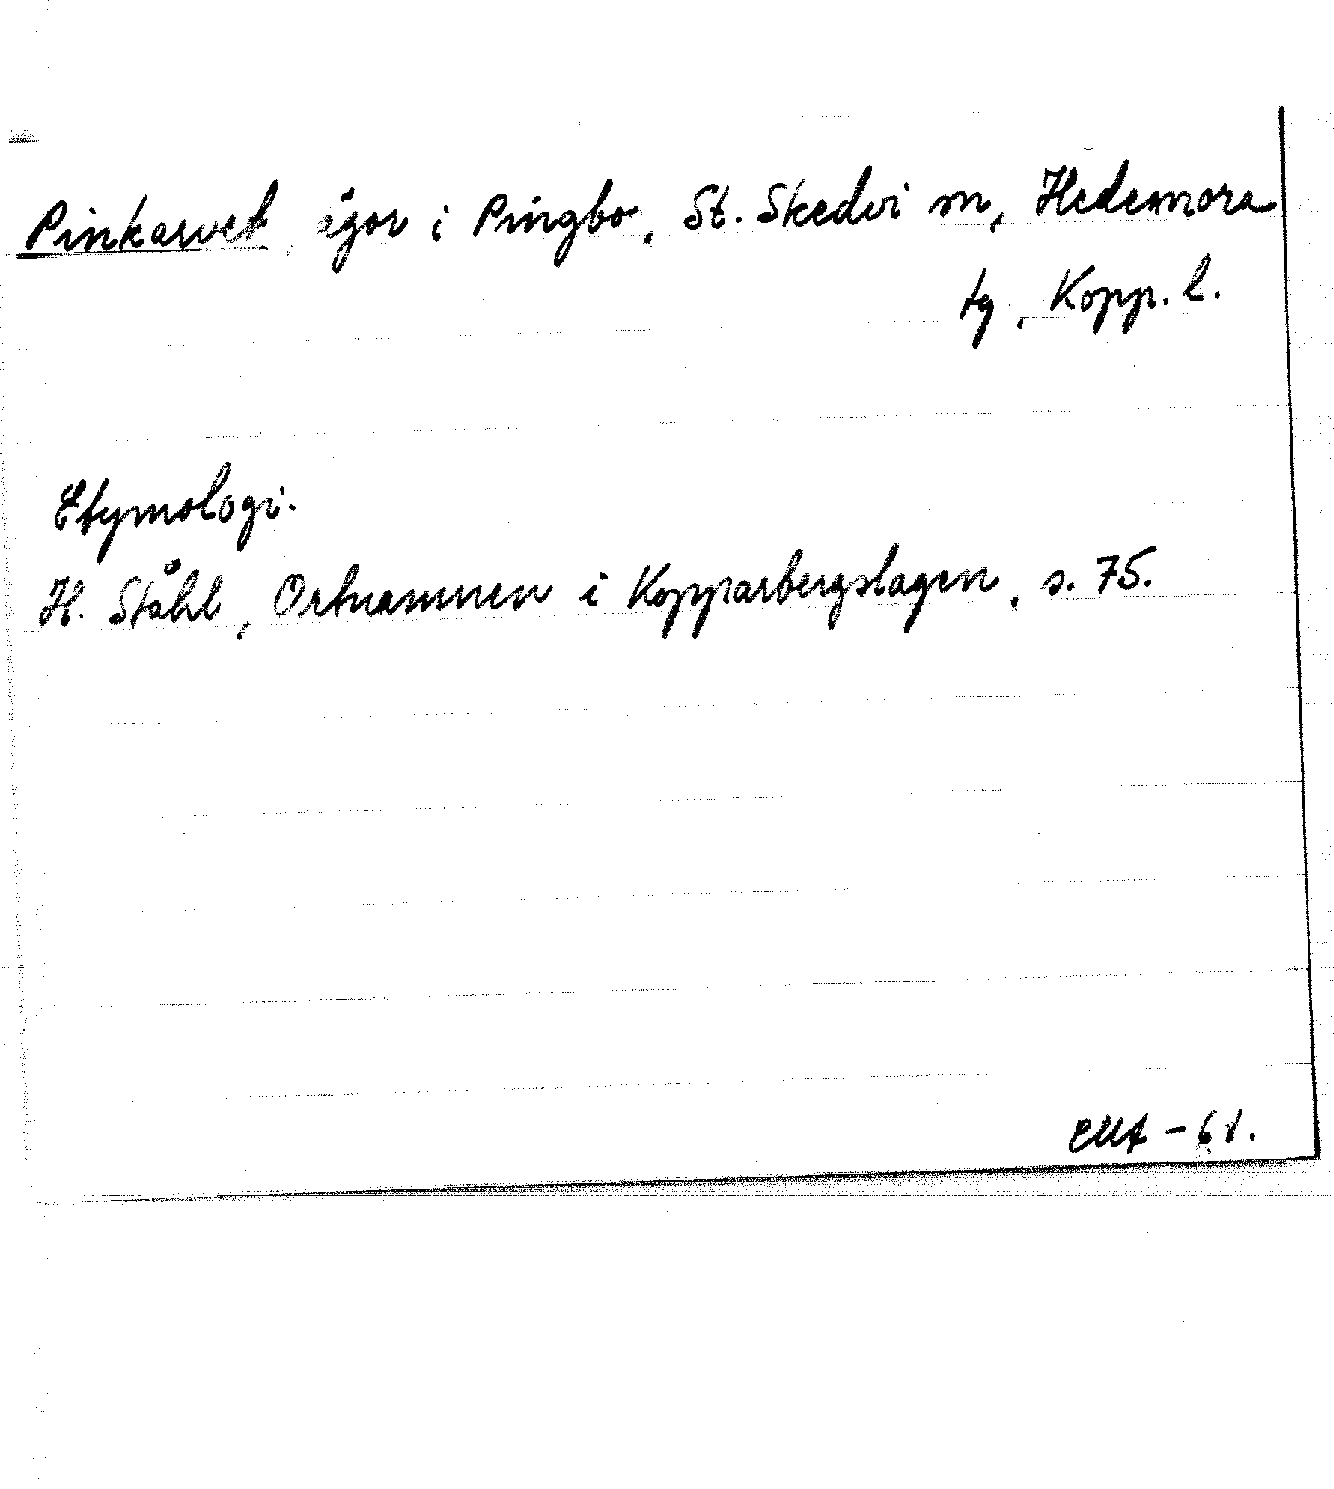 Pinkarvet, ägor i Pingbo, St. Skedvi sn, Hedemora
tg, Kopp. l.
Etymologi.
H. Ståhl, Ortnamnen i Kopparbergslagen, s. 75.